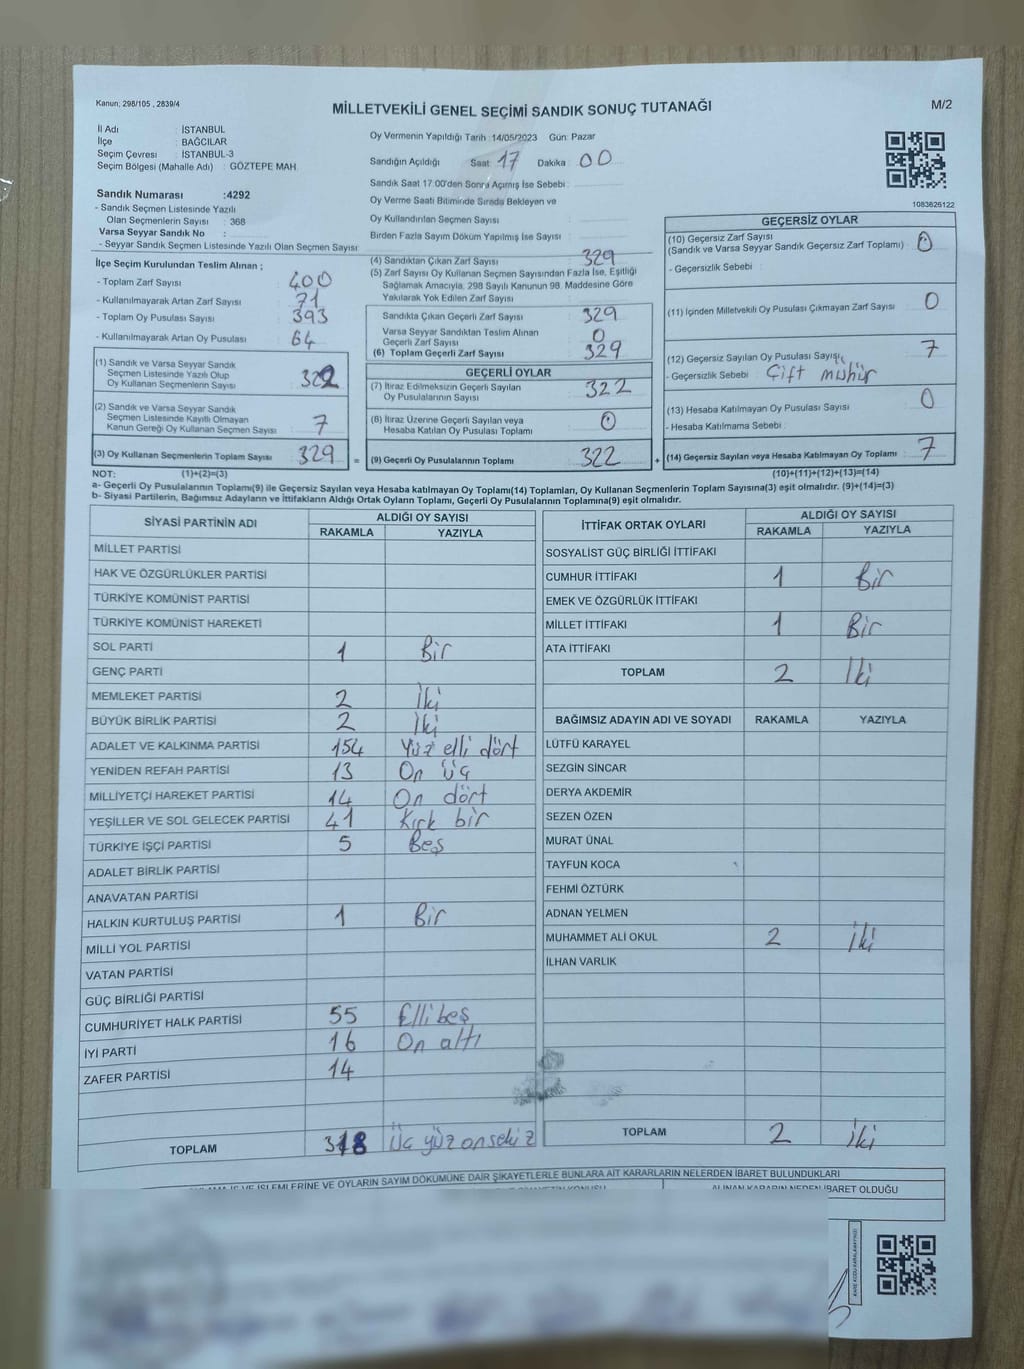 Kanun; 298/105 , 2839/4
MİLLETVEKİLİ GENEL SEÇİMİ SANDIK SONUÇ TUTANAĞI
M/2
İl Adı : İSTANBUL
İlçe : BAĞCILAR
Seçim Çevresi : İSTANBUL-3
Seçim Bölgesi (Mahalle Adı) : GÖZTEPE MAH.
Sandık Numarası :4292
- Sandık Seçmen Listesinde Yazılı
Olan Seçmenlerin Sayısı : 368
Varsa Seyyar Sandık No :
- Seyyar Sandık Seçmen Listesinde Yazılı Olan Seçmen Sayısı:
İlçe Seçim Kurulundan Teslim Alınan ;
- Toplam Zarf Sayısı : 400
- Kullanılmayarak Artan Zarf Sayısı : 71
- Toplam Oy Pusulası Sayısı : 393
- Kullanılmayarak Artan Oy Pusulası : 64
(1) Sandık ve Varsa Seyyar Sandık
Seçmen Listesinde Yazılı Olup
Oy Kullanan Seçmenlerin Sayısı 322
(2) Sandık ve Varsa Seyyar Sandık
Seçmen Listesinde Kayıtlı Olmayan
Kanun Gereği Oy Kullanan Seçmen Sayısı 7
(3) Oy Kullanan Seçmenlerin Toplam Sayısı 329 =
Oy Vermenin Yapıldığı Tarih :14/05/2023 Gün: Pazar
Sandığın Açıldığı Saat 17 Dakika : 00
Sandık Saat 17.00'den Sonra Açılmış İse Sebebi :
Oy Verme Saati Bitiminde Sırada Bekleyen ve
Oy Kullandırılan Seçmen Sayısı :
Birden Fazla Sayım Döküm Yapılmış İse Sayısı :
(4) Sandıktan Çıkan Zarf Sayısı : 329
(5) Zarf Sayısı Oy Kullanan Seçmen Sayısından Fazla İse, Eşitliği
Sağlamak Amacıyla, 298 Sayılı Kanunun 98. Maddesine Göre
Yakılarak Yok Edilen Zarf Sayısı :
Sandıkta Çıkan Geçerli Zarf Sayısı : 329
Varsa Seyyar Sandıktan Teslim Alınan
Geçerli Zarf Sayısı : 0
(6) Toplam Geçerli Zarf Sayısı : 329
GEÇERLİ OYLAR
(7) İtiraz Edilmeksizin Geçerli Sayılan
Oy Pusulalarının Sayısı : 322
(8) İtiraz Üzerine Geçerli Sayılan veya
Hesaba Katılan Oy Pusulası Toplamı : 0
(9) Geçerli Oy Pusulalarının Toplamı : 322 +
1083826122
GEÇERSİZ OYLAR
(10) Geçersiz Zarf Sayısı
(Sandık ve Varsa Seyyar Sandık Geçersiz Zarf Toplamı) : 0
- Geçersizlik Sebebi :
(11) İçinden Milletvekili Oy Pusulası Çıkmayan Zarf Sayısı : 0
(12) Geçersiz Sayılan Oy Pusulası Sayısı : 7
- Geçersizlik Sebebi : Çift mühür
(13) Hesaba Katılmayan Oy Pusulası Sayısı : 0
- Hesaba Katılmama Sebebi :
(14) Geçersiz Sayılan veya Hesaba Katılmayan Oy Toplamı : 7
NOT: (1)+(2)=(3) (10)+(11)+(12)+(13)=(14)
a- Geçerli Oy Pusulalarının Toplamı(9) ile Geçersiz Sayılan veya Hesaba katılmayan Oy Toplamı(14) Toplamları, Oy Kullanan Seçmenlerin Toplam Sayısına(3) eşit olmalıdır. (9)+(14)=(3)
b- Siyasi Partilerin, Bağımsız Adayların ve İttifakların Aldığı Ortak Oyların Toplamı, Geçerli Oy Pusulalarının Toplamına(9) eşit olmalıdır.
SİYASİ PARTİNİN ADI ALDIĞI OY SAYISI
RAKAMLA YAZIYLA
MİLLET PARTİSİ
HAK VE ÖZGÜRLÜKLER PARTİSİ
TÜRKİYE KOMÜNİST PARTİSİ
TÜRKİYE KOMÜNİST HAREKETİ
SOL PARTİ 1 Bir
GENÇ PARTİ
MEMLEKET PARTİSİ 2 İki
BÜYÜK BİRLİK PARTİSİ 2 İki
ADALET VE KALKINMA PARTİSİ 154 Yüz elli dört
YENİDEN REFAH PARTİSİ 13 On üç
MİLLİYETÇİ HAREKET PARTİSİ 14 On dört
YEŞİLLER VE SOL GELECEK PARTİSİ 41 Kırk bir
TÜRKİYE İŞÇİ PARTİSİ 5 Beş
ADALET BİRLİK PARTİSİ
ANAVATAN PARTİSİ
HALKIN KURTULUŞ PARTİSİ 1 Bir
MİLLİ YOL PARTİSİ
VATAN PARTİSİ
GÜÇ BİRLİĞİ PARTİSİ
CUMHURİYET HALK PARTİSİ 55 Elli beş
İYİ PARTİ 16 On altı
ZAFER PARTİSİ 14
TOPLAM 318 Üç yüz onsekiz
İTTİFAK ORTAK OYLARI ALDIĞI OY SAYISI
RAKAMLA YAZIYLA
SOSYALİST GÜÇ BİRLİĞİ İTTİFAKI
CUMHUR İTTİFAKI 1 Bir
EMEK VE ÖZGÜRLÜK İTTİFAKI
MİLLET İTTİFAKI 1 Bir
ATA İTTİFAKI
TOPLAM 2 İki
BAĞIMSIZ ADAYIN ADI VE SOYADI RAKAMLA YAZIYLA
LÜTFÜ KARAYEL
SEZGİN SİNCAR
DERYA AKDEMİR
SEZEN ÖZEN
MURAT ÜNAL
TAYFUN KOCA
FEHMİ ÖZTÜRK
ADNAN YELMEN
MUHAMMET ALİ OKUL 2 İki
İLHAN VARLIK
TOPLAM 2 İki
İŞLEMLERİNE VE OYLARIN SAYIM DÖKÜMÜNE DAİR ŞİKAYETLERLE BUNLARA AİT KARARLARIN NELERDEN İBARET BULUNDUKLARI
ALINAN KARARIN NEDEN İBARET OLDUĞU
KARE KODU KARALAMAYINIZ!